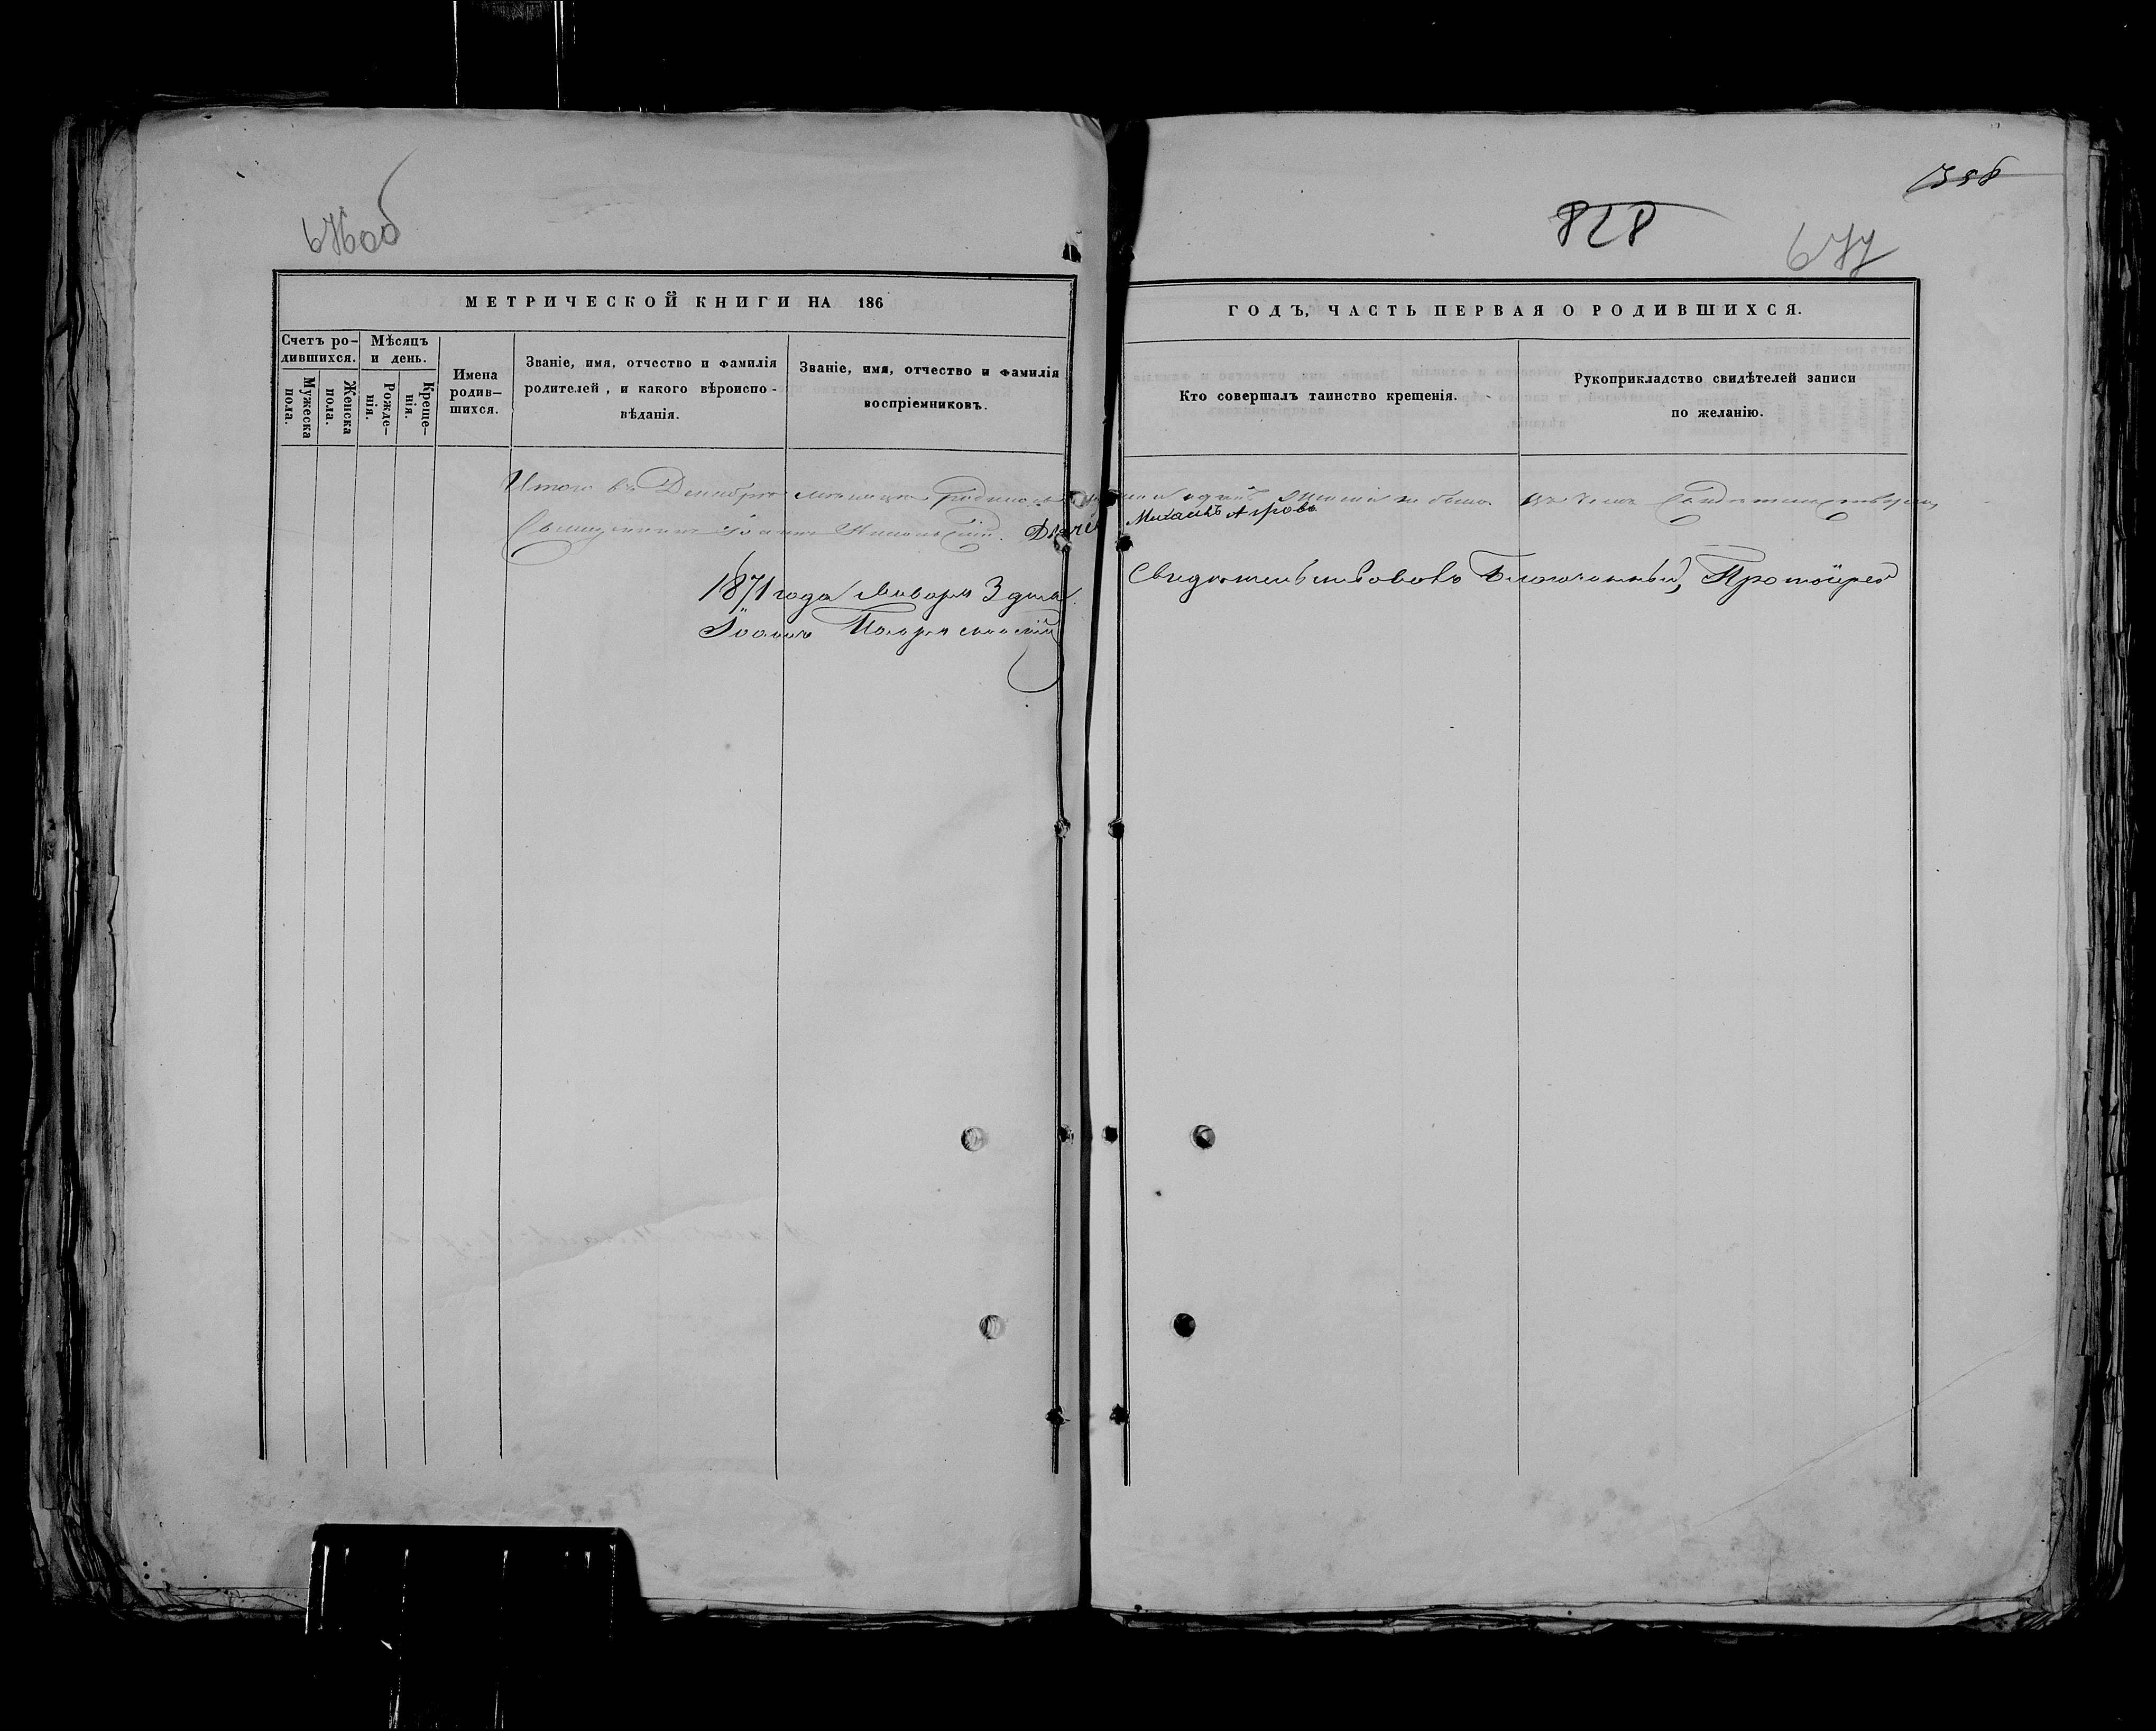 676об
358
828
677
МЕТРИЧЕСКОЙ КНИГИ НА 186
ГОДЪ, ЧАСТЬ ПЕРВАЯ О РОДИВШИХСЯ.
Счетъ ро-
дившихся.
Мужеска
пола.
Женска
пола.
Мѣсяцъ
и день.
Рожде-
нія.
Креще-
нія.
Имена
родив-
шихся.
Званіе, имя, отчество и фамилія
родителей, и какого вѣроиспо-
вѣданія.
Званіе, имя, отчество и фамилія
воспріемниковъ.
Кто совершалъ таинство крещенія.
Рукоприкладство свидѣтелей записи
по желанію.
Итого въ Декабрѣ мѣсяцѣ не было въ чемъ
Священникъ Іоаннъ Дьячекъ Михаилъ
1871 года Января 3 дня Свидѣтельствовалъ Благочинный, Протоіерей
Іоаннъ